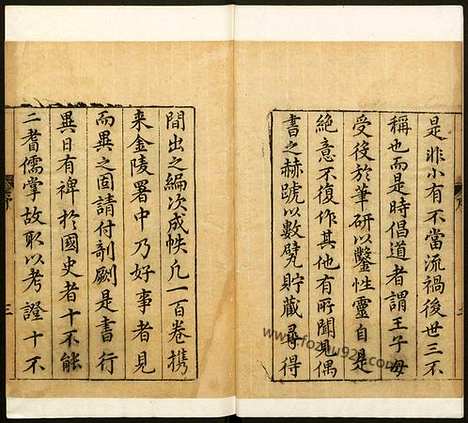 是非小有不當流禍後世三不
稱也而是時倡道者謂王子毋
受役於筆研以鑿性靈自是
絶意不復作其他有所聞見偶
書之赫蹏以數甓貯藏尋得
間出之編次成帙凡一百卷携
来金陵署中乃好事者見
而異之固請付剞劂是書行
異日有禆於國史者十不能
二耆儒掌故取以考證十不
序
三
www.fozhu920.com